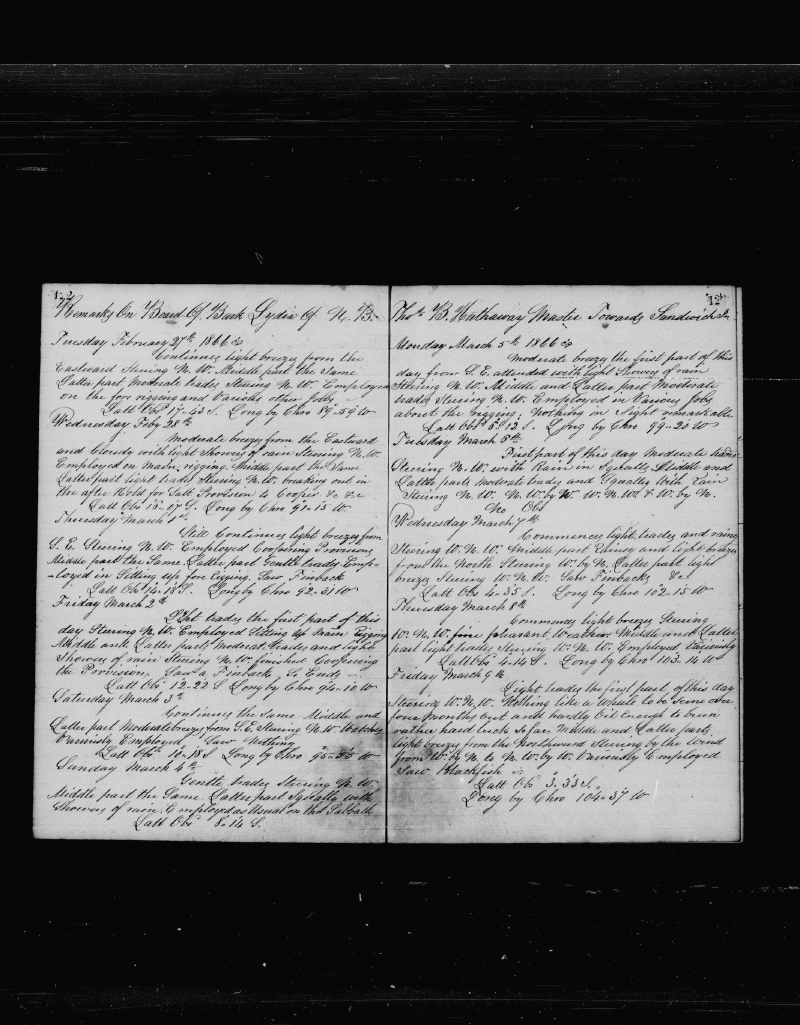 Remarks On Board Of Bark Lydia Of N. B.
Tuesday February 27th 1866
Continues light breezes from the
Eastward Stearing N. W. Middle part the Same
Latter part Moderate trades Stearing N. W. Employed
on the fore rigging and Various other Jobs
Latt Obs 17-43 S. Long by Chro 89-59 W
Wednesday Feby 28th
Moderate breezes from the Eastward
and Cloudy with light Showers of rain Stearing N. W.
Employed on Main rigging. Middle part the Same
Latter part light trades Stearing N. W. breaking out in
the after Hold for Salt Provision to Cooper &c &c
Latt Obs 15-07 S. Long by Chro 91-15 W
Thursday March 1st
Still Continues light breezes from
S. E. Stearing N. W. Employed Coopering Provisions
Middle part the Same Latter part Gentle trades Emp-
-loyed in Setting up fore rigging. Saw Finback
Latt Obs 14-18 S. Long by Chro 92-31 W
Friday March 2nd
Light trades the first part of this
day Stearing N. W. Employed Setting up Main rigging
Middle and Latter parts Moderate trades and light
Showers of rain Stearing N. W. finished Coopering
the Provision. Saw a Finback So Ends
Latt Obs 12-22 S Long by Chro 94-10 W
Saturday March 3rd
Continues the Same Middle and
Latter part Moderate breezes from S. E. Stearing N. W. Watches
Variously Employed Saw Nothing
Latt Obs 10-18 S Long by Chro 95-55 W
Sunday March 4th
Gentle trades Stearing N. W.
Middle part the Same Latter part Squally with
Showers of rain. Employed as Usual on the Sabbath
Latt Obs 8-14 S.
Thos. B. Hathaway Master Towards Sandwich Is.
Monday March 5th 1866
Moderate breezes the first part of this
day from S. E. attended with light Showers of rain
Stearing N. W. Middle and Latter part Moderate
trades Stearing N. W. Employed in Various Jobs
about the rigging; Nothing in Sight remarkable
Latt Obs 6-12 S. Long by Chro 99-20 W
Tuesday March 6th
First part of this day Moderate trades
Stearing N. W. with Rain in Squalls, Middle and
Latter parts Moderate trades and Squally with Rain
Stearing N. W. N. W. by W. W. N. W. & W. by N.
No Obs
Wednesday March 7th
Commences light trades and rainy
Stearing W. N. W. Middle part Rainy and light breezes
from the North Stearing W. by N. Latter part light
breezes Stearing W. N. W. Saw Finbacks &c
Latt Obs 4-35 S. Long by Chro 102-15 W
Thursday March 8th
Commences light breezes Stearing
W. N. W. fine pleasant Weather. Middle and Latter
part light trades Stearing W. N. W. Employed Variously
Latt Obs 4-14 S. Long by Chro 103-14 W
Friday March 9th
Light trades the first part of this day
Stearing W. N. W. Nothing like a Whale to be Seen Over
four Months Out and hardly Oil Enough to burn
rather hard luck So far Middle and Latter parts
light breezes from the Northward Stearing by the Wind
from W. by N. to N. W. by W. Variously Employed
Saw Blackfish
Latt Obs 3. 33 S.
Long by Chro 104-37 W